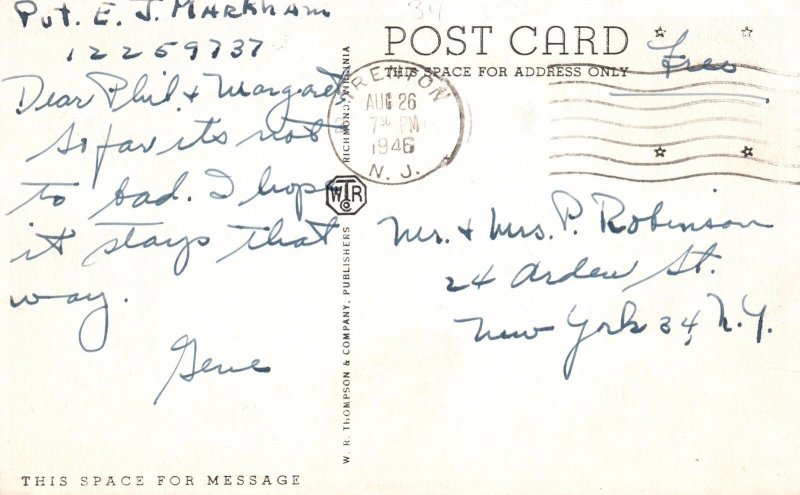 Pvt. E. J. Markham
12259737
Dear Phil & Margaret
So far its not
to bad. I hope
it stays that
way.
Gene
THIS SPACE FOR MESSAGE
W. R. THOMPSON & COMPANY, PUBLISHERS
WTR
Co
RICHMOND, VIRGINIA
POST CARD
THIS SPACE FOR ADDRESS ONLY
Free
TRENTON
AUG 26
7 30 PM
1946
N. J.
Mr. & Mrs. P. Robinson
24 Arden St.
New York 34, N.Y.